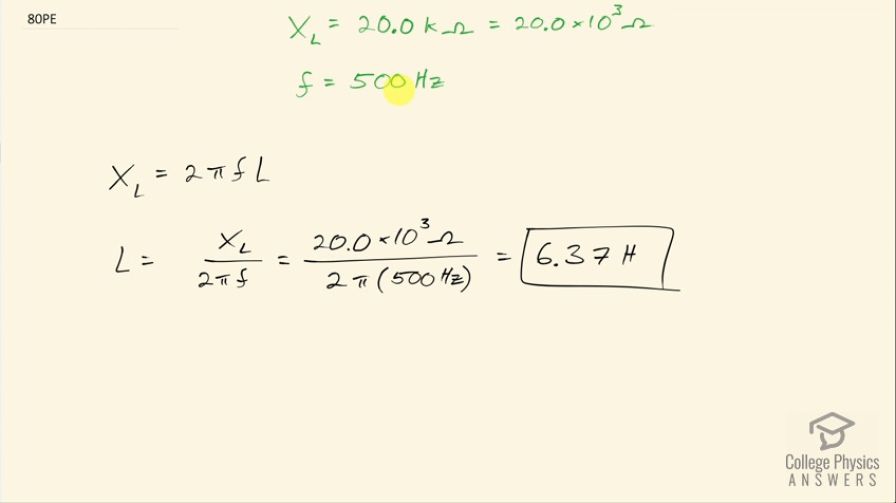 80PE
X_L = 20.0 kΩ = 20.0 × 10³ Ω
f = 500 Hz
X_L = 2πfL
L = X_L / 2πf = 20.0 × 10³ Ω / 2π(500 Hz) = 6.37 H
College Physics
ANSWERS